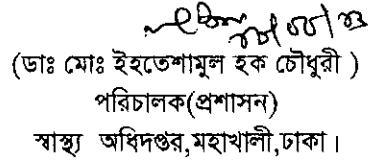 (ডাঃ মোঃ ইহতেশামুল হক চৌধুরী )
পরিচালক(প্রশাসন)
স্বাস্থ্য অধিদপ্তর,মহাখালী,ঢাকা।